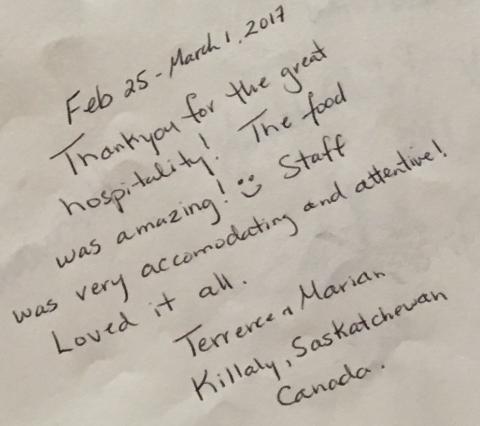 Feb 25 - March 1, 2017
Thankyou for the great
hospitality! The food
was amazing! Staff
was very accomodating and attentive!
Loved it all.
Marian
Killaly, Saskatchewan
Canada.